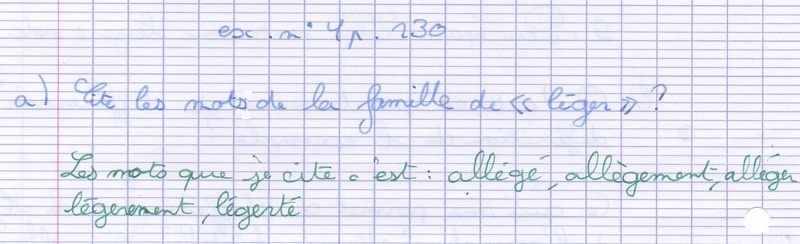 ex. n° 4 p. 230
a) Cite les mots de la famille de « léger » ?
Les mots que je cite c'est : allégé, allègement, alléger
légerement, légerté